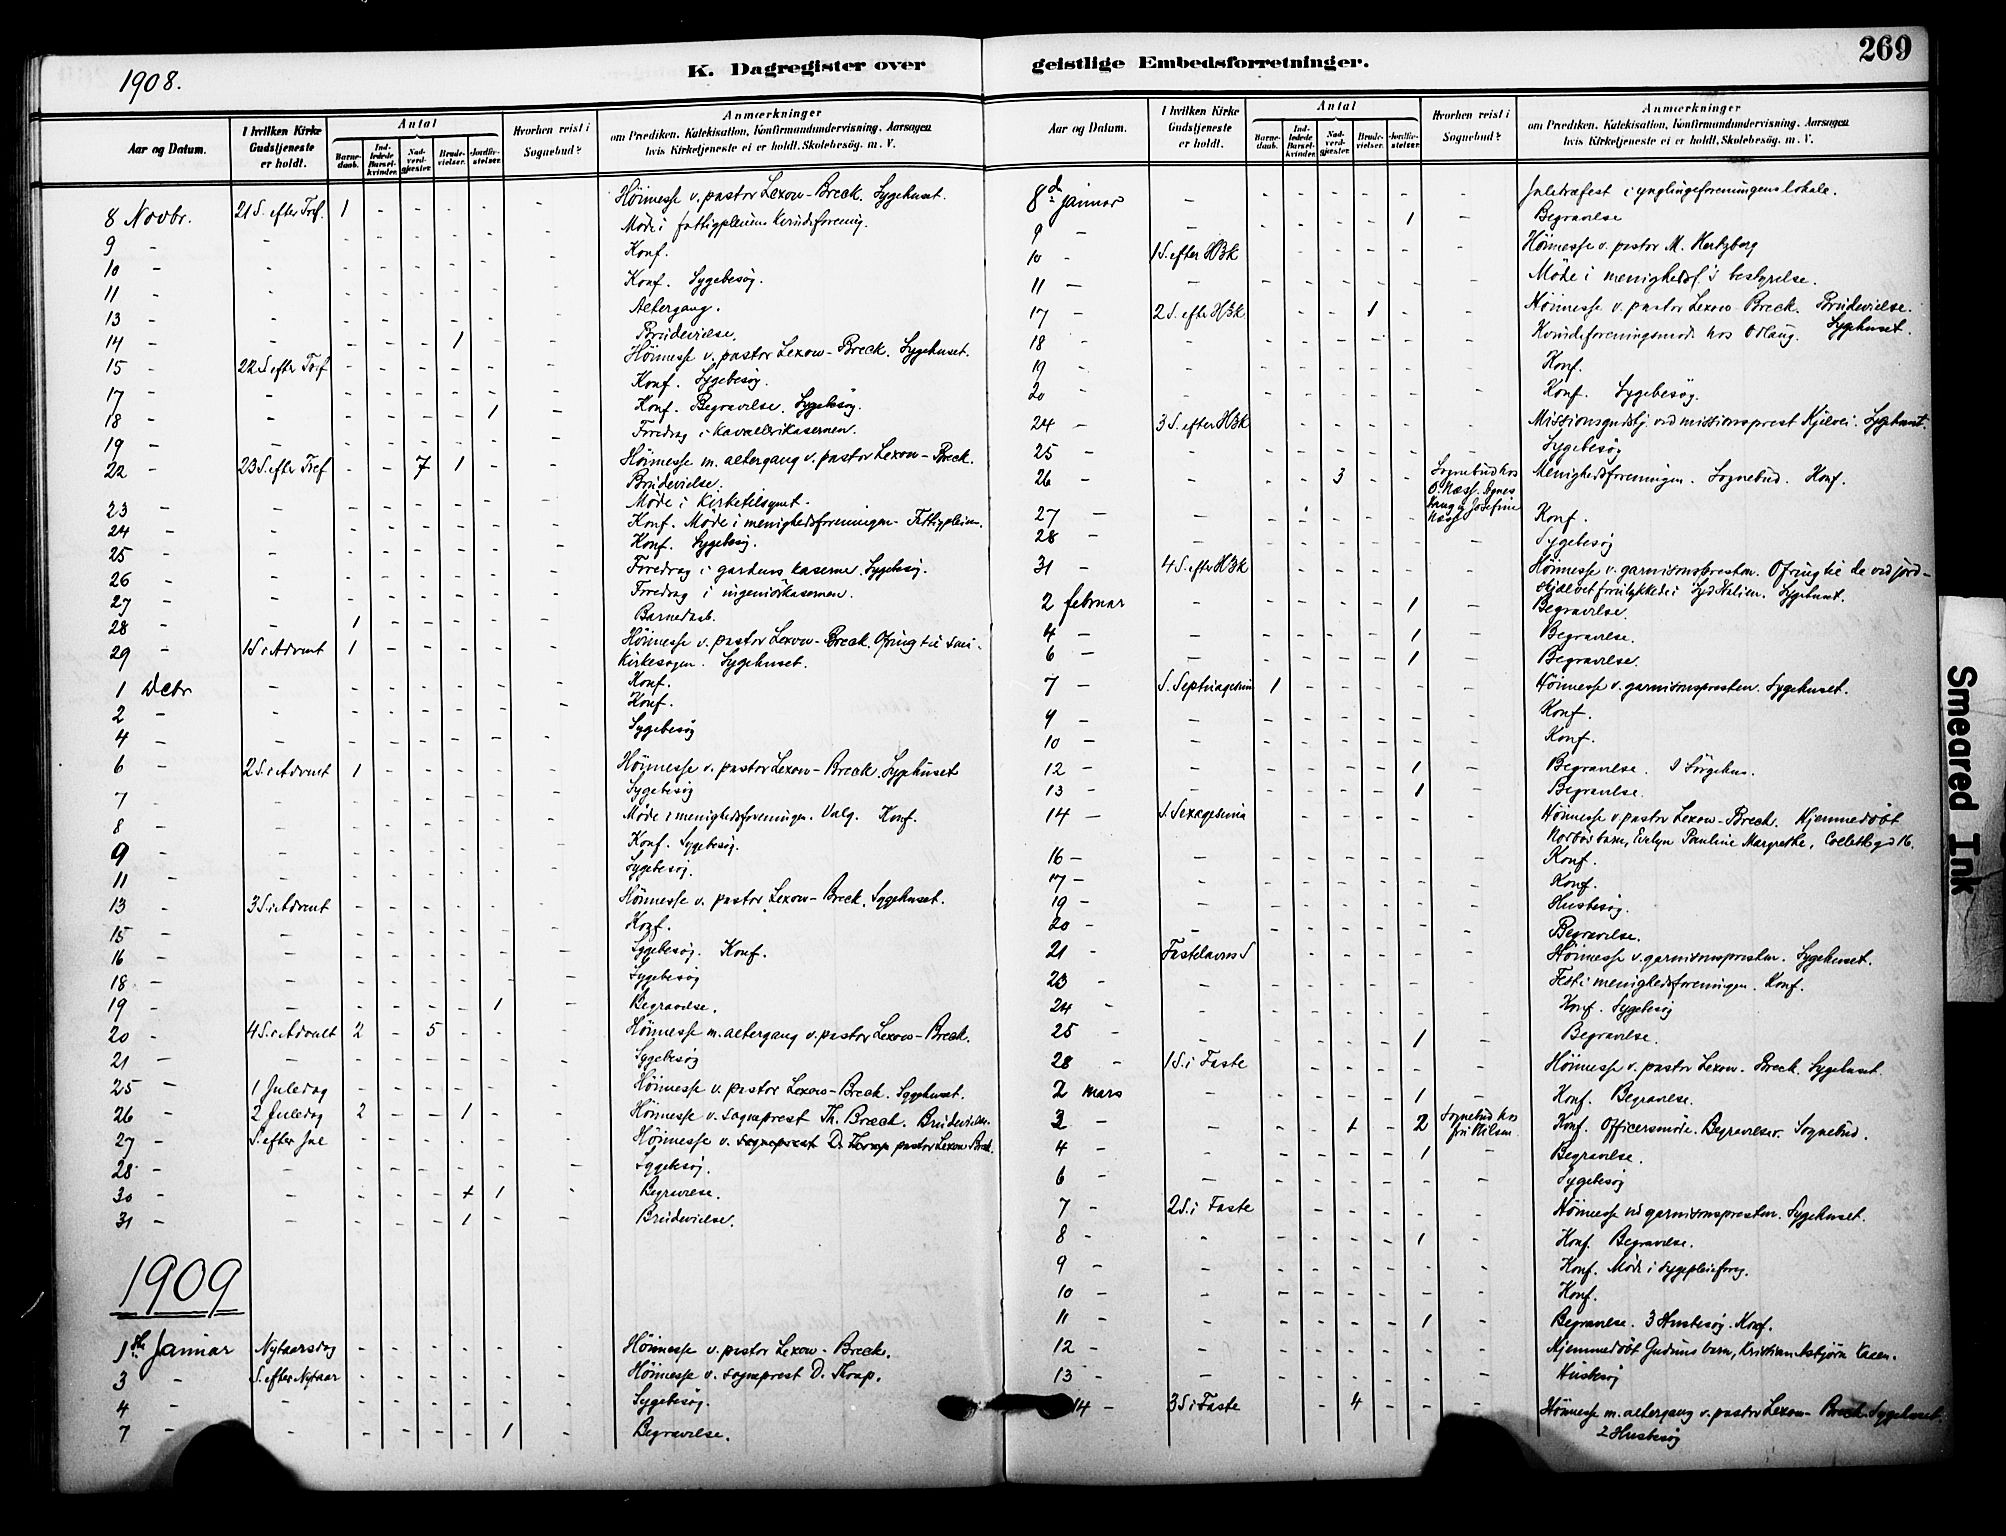 1908.
K. Dagregister over
Aar og Datum.
I hvilken Kirke Gudstjeneste er holdt.
Antal
Barnedaab.
Indledede Barselkvinder.
Nadverdgjæster.
Brudevielser.
Jordfæstelser.
Hvorhen reist i Sognebud?
Anmærkninger
om Prædiken, Katekisation, Konfirmandundervisning, Aarsagen
hvis Kirketjeneste ei er holdt, Skolebesøg, m. V.
8 Novbr. 21 S. efter Tref. 1 - - - - - Höimesse v. pastor Lexow-Breck. Sygehuset.
9 - - - - - - - - Möde i fattigpleiens Kvindeforening.
10 - - - - - - - - Konf.
11 - - - - - - - - Konf. Sygebesög.
13 - - - - - - - - Altergang.
14 - - - - - 1 - - Brudevielse.
15 - 22 S efter Tref - - - - - - Höimesse v. pastor Lexow-Breck. Sygehuset.
17 - - - - - - - - Konf. Sygebesög.
18 - - - - - - 1 - Konf. Begravelse. Sygebesög.
19 - - - - - - - - Foredrag i Kavallerikasernen.
22 - 23 S. efter Tref - - 7 1 - - Höimesse m. altergang v. pastor Lexow-Breck.
Brudevielse.
23 - - - - - - - - Möde i Kirketilsynet.
24 - - - - - - - - Konf. Möde i menighedsforeningen - Fattigpleien.
25 - - - - - - - - Konf. Sygebesög.
26 - - - - - - - - Foredrag i gardens kaserne. Sygebesög.
27 - - - - - - - - Foredrag i ingeniörkasernen.
28 - - 1 - - - - - Barnedaab.
29 - 1 S. i Advent 1 - - - - - Höimesse v. pastor Lexow-Breck. Ofring til
Kirkesagen. Sygehuset.
1 Dcbr - - - - - - - Konf.
2 - - - - - - - - Konf.
4 - - - - - - - - Sygebesög
6 - 2 S. i Advent 1 - - - - - Höimesse v. pastor Lexow-Breck. Sygehuset
7 - - - - - - - - Sygebesög
8 - - - - - - - - Möde i menighedsforeningen. Valg. Konf.
9 - - - - - - - - Konf. Sygebesög.
11 - - - - - - - - Sygebesög.
13 - 3 S. i Advent - - - - - - Höimesse v. pastor Lexow-Breck. Sygehuset.
15 - - - - - - - - Konf.
16 - - - - - - - - Sygebesög. Konf.
18 - - - - - - - - Sygebesög
19 - - - - - - 1 - Begravelse.
20 - 4 S. i Advent 2 - 5 - - - Höimesse m. altergang v. pastor Lexow-Breck.
21 - - - - - - - - Sygebesög
25 - 1 Juledag - - - - - - Höimesse v. pastor Lexow-Breck. Sygehuset.
26 - 2 Juledag 2 - - 1 - - Höimesse v. sogneprest Th. Breck. Brudevielse.
27 - S. efter Jul - - - - - - Höimesse v. sogneprest D. Thrap pastor Lexow Breck.
28 - - - - - - - - Sygebesög.
30 - - - - - + 1 - Begravelse.
31 - - - - - 1 - - Brudevielse.
1909
1ste Januar Nytaarsdag - - - - - - Höimesse v. pastor Lexow-Breck.
3 - S. efter Nytaar - - - - - - Höimesse v. sogneprest D. Thrap.
4 - - - - - - - - Sygebesög.
7 - - - - - - 1 - Begravelse.
geistlige Embedsforretninger.
269
Aar og Datum.
I hvilken Kirke Gudstjeneste er holdt.
Antal
Barnedaab.
Indledede Barselkvinder.
Nadverdgjæster.
Brudevielser.
Jordfæstelser.
Hvorhen reist i Sognebud?
Anmærkninger
om Prædiken, Katekisation, Konfirmandundervisning, Aarsagen
hvis Kirketjeneste ei er holdt, Skolebesøg, m. V.
8de januar - - - - - - - Juletræfest i ynglingeforeningens lokale.
9 - - - - - - 1 - Begravelse
10 - 1 S. efter H3k - - - - - - Höimesse v. pastor M. Hertzberg
11 - - - - - - - - Möde i menighedsf.s bestyrelse.
17 - 2 S. efter H3k - - - 1 - - Höimesse v. pastor Lexow Breck. Brudevielse.
Sygehuset.
18 - - - - - - - - Kvindeforeningsmöde hos Odlaug.
19 - - - - - - - - Konf.
20 - - - - - - - - Konf. Sygebesög.
24 - 3 S. efter H3k - - - - - - Missionsgudstj. ved missionsprest Kjelvei. Sygehuset.
25 - - - - - - - - Sygebesög
26 - - - - 3 - - Sognebud hos O. Næss. Agnes Haug og Josefine Næss Menighedsforeningen. Sognebud. Konf.
27 - - - - - - - Konf.
28 - - - - - - - - Sygebesög
31 - 4 S. efter H3k - - - - - - Höimesse v. garnisonspresten. Ofring til de ved jord-
skjælvet forulykkede i Syd Italien. Sygehuset.
2 februar - - - - - 1 - Begravelse.
4 - - - - - - 1 - Begravelse.
6 - - - - - - 1 - Begravelse.
7 - S. Septuagesima 1 - - - - - Höimesse v. garnisonspresten. Sygehuset.
9 - - - - - - - - Konf.
10 - - - - - - - - Konf.
12 - - - - - - 1 - Begravelse. I Sörgehus.
13 - - - - - - 1 - Begravelse.
14 - S. Sexagesima - - - - - - Höimesse v. pastor Lexow-Breck. Hjemmedöbt
barn, Evelyn Pauline Margrethe, Collettsgd 16.
16 - - - - - - - - Konf.
17 - - - - - - - - Konf.
19 - - - - - - - - Husbesög.
20 - - - - - - - - Begravelse.
21 - Fastelavns S - - - - - - Höimesse v. garnisonspresten. Sygehuset.
23 - - - - - - - - Fest i menighedsforeningen. Konf.
24 - - - - - - - - Konf. Sygebesög
25 - - - - - - 1 - Begravelse.
28 - 1 S. i Faste - - - - - - Höimesse v. pastor Lexow-Breck. Sygehuset.
2 mars - - - - - 1 - Konf. Begravelse.
3 - - - - 1 - 2 Sognebud hos fru Nilsen Konf. Officersmöde. Begravelser. Sognebud.
4 - - - - - - 1 - Begravelse.
6 - - - - - - - - Sygebesög
7 - 2 S. i Faste - - - - - - Höimesse ved garnisonspresten. Sygehuset.
8 - - - - - - 1 - Konf. Begravelse.
9 - - - - - - - - Konf. Möde i sygepleieforeg.
10 - - - - - - - - Konf.
11 - - - - - - 1 - Begravelse. 3 Husbesög. Konf.
12 - - - - - - - - Hjemmedöbt Guduns barn, Kristian Asbjørn
13 - - - - - - - - Husbesög
14 - 3 S i Faste - 4 - - - Höimesse m. altergang v. pastor Lexow-Breck Sygehuset
2 Husbesög
Smeared Ink